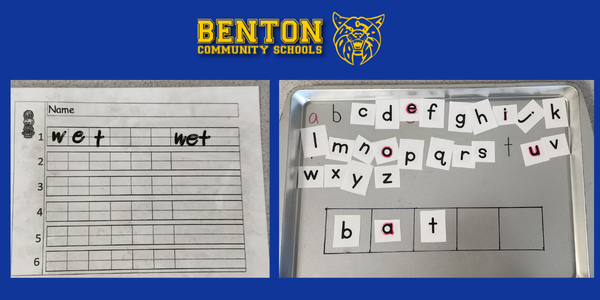 BENTON
COMMUNITY SCHOOLS
Name
1 w e t wet
2
3
4
5
6
a b c d e f g h i j k
l m n o p q r s t u v
w x y z
b a t